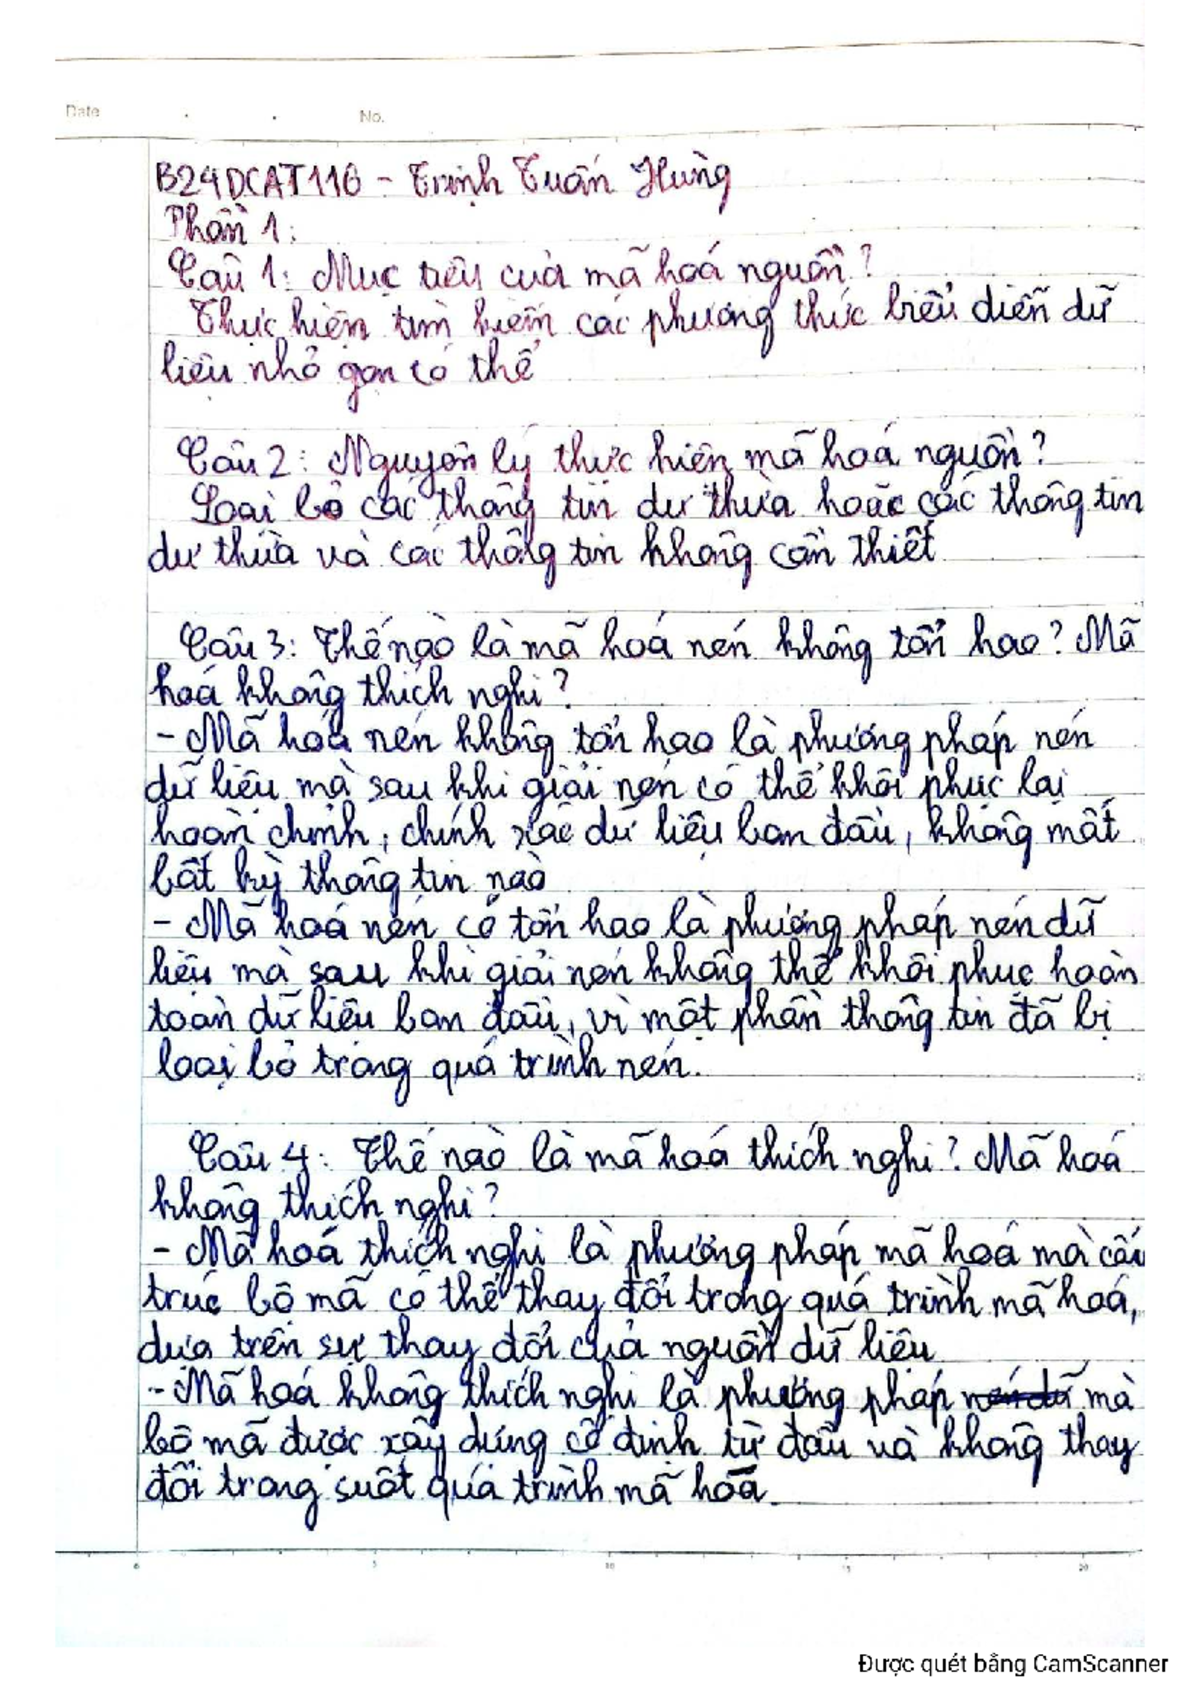 Date . . No.
B24DCAT116 - Trịnh Tuấn Hưng
Phần 1:
Câu 1: Mục tiêu của mã hoá nguồn?
Thực hiện tìm kiếm các phương thức biểu diễn dữ
liệu nhỏ gọn có thể
Câu 2: Nguyên lý thực hiện mã hoá nguồn?
Loại bỏ các thông tin dư thừa hoặc các thông tin
dư thừa và các thông tin không cần thiết
Câu 3: Thế nào là mã hoá nén không tổn hao? Mã
hoá không thích nghi?
- Mã hoá nén không tổn hao là phương pháp nén
dữ liệu mà sau khi giải nén có thể khôi phục lại
hoàn chỉnh, chính xác dữ liệu ban đầu, không mất
bất kỳ thông tin nào
- Mã hoá nén có tổn hao là phương pháp nén dữ
liệu mà sau khi giải nén không thể khôi phục hoàn
toàn dữ liệu ban đầu, vì một phần thông tin đã bị
loại bỏ trong quá trình nén.
Câu 4: Thế nào là mã hoá thích nghi? Mã hoá
không thích nghi?
- Mã hoá thích nghi là phương pháp mã hoá mà cấu
trúc bộ mã có thể thay đổi trong quá trình mã hoá,
dựa trên sự thay đổi của nguồn dữ liệu
- Mã hoá không thích nghi là phương pháp nén dữ mà
bộ mã được xây dựng cố định từ đầu và không thay
đổi trong suốt quá trình mã hoá.
0 5 10 15 20
Được quét bằng CamScanner